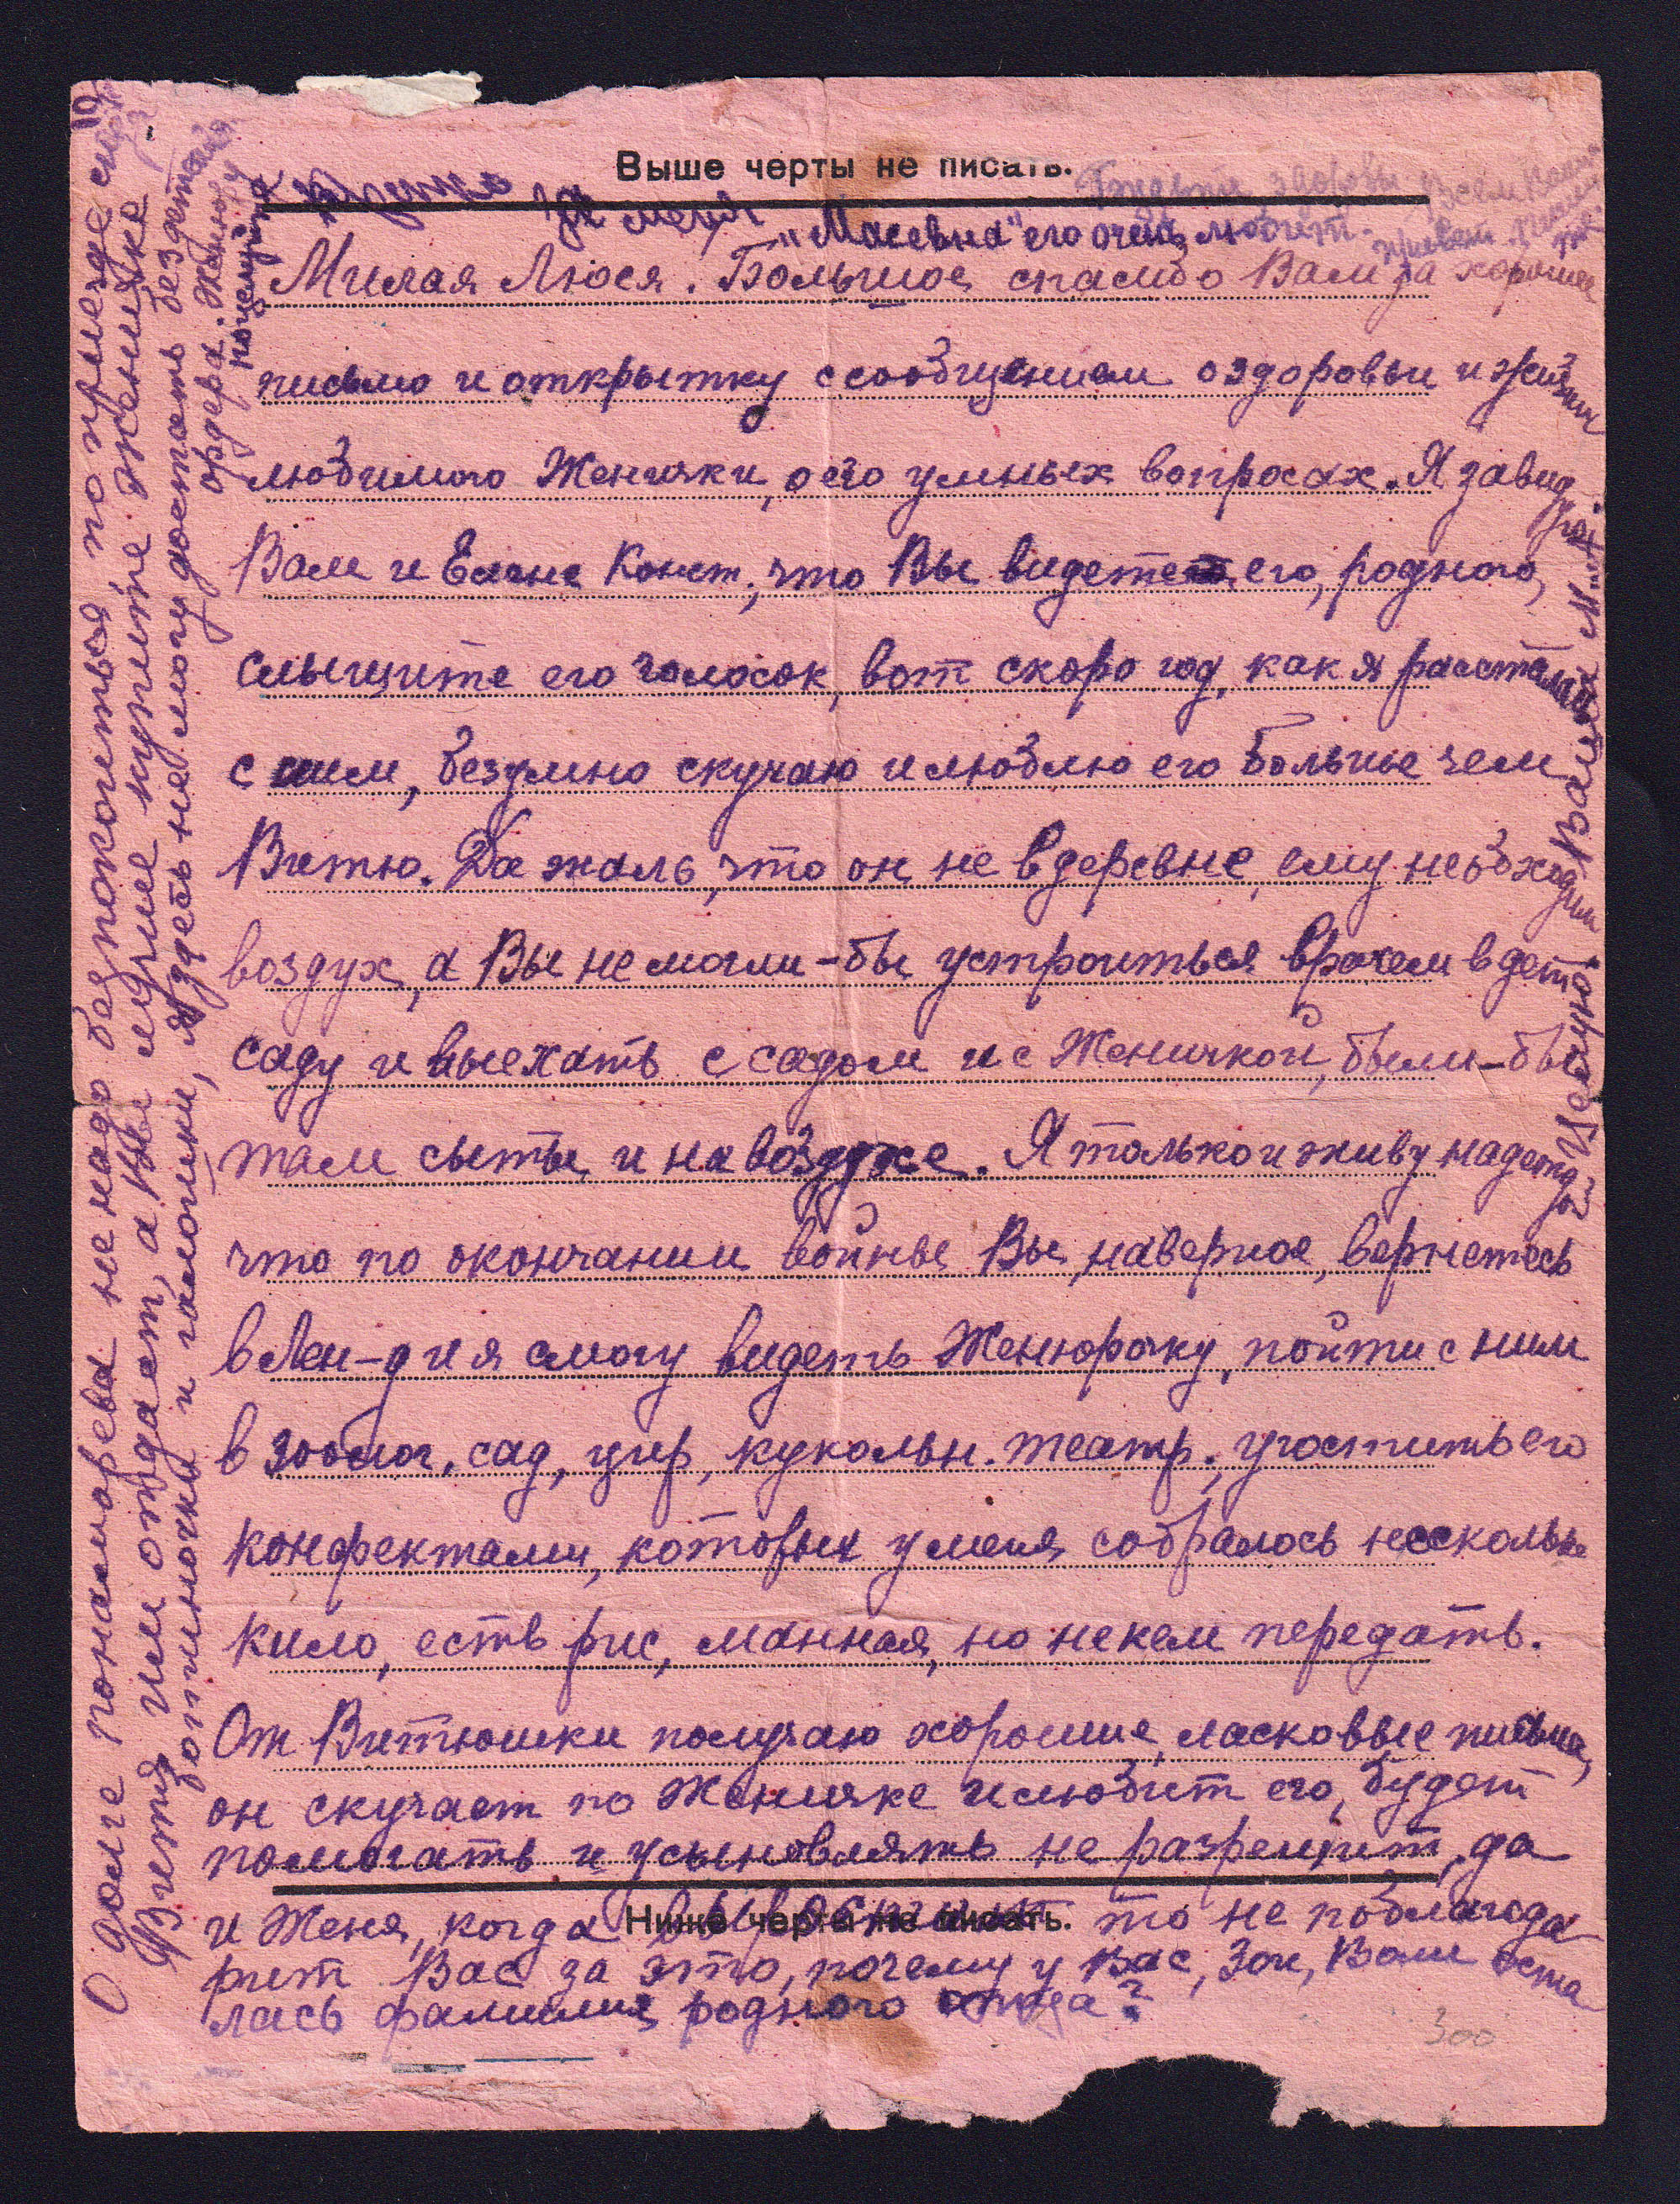 Выше черты не писать.
Милая Люся. Большое спасибо Вам за хорошее
письмо и открытку с сообщением о здоровьи и жизни
любимого Женички, о его умных вопросах. Я завидую
Вам и Елене Конст., что Вы видете его, родного,
слышите его голосок, вот скоро год, как я рассталась
с ним, безумно скучаю и люблю его больше чем
Витю. Да жаль, что он не в деревне, ему необходим
воздух, а Вы не могли-бы устроиться врачем в дет.
саду и выехать с садом и с Женичкой, были-бы
там сыты и на воздухе. Я только и живу надеждой
что по окончании войны Вы, наверное, вернетесь
в Лен-д и я смогу видеть Женюрочку, пойти с ним
в зоолог. сад, цирк, кукольн. театр., угостить его
конфектами, которых у меня собралось несколько
кило, есть рис, манная, но не кем передать.
От Витюшки получаю хорошие, ласковые письма,
он скучает по Женичке и любит его, будет
помогать и усыновлять не разрешит, да
и Женя, когда вырастит то не поблагода-
рит Вас за это, почему у Вас, Зои, Вали оста-
лась фамилия родного отца?
Ниже черты не писать.
О долге понамарева не надо безпокоиться по приезде
Витя им отдаст, а Вы лучше купите Женичке
ботиночки и галошики, я здесь не могу достать без дет.
ордера. Женюру
поцелуйте
крепко
за меня
"Масевна" его очень любит.
Целую Вас
Будьте здоровы Всем
привет.
300